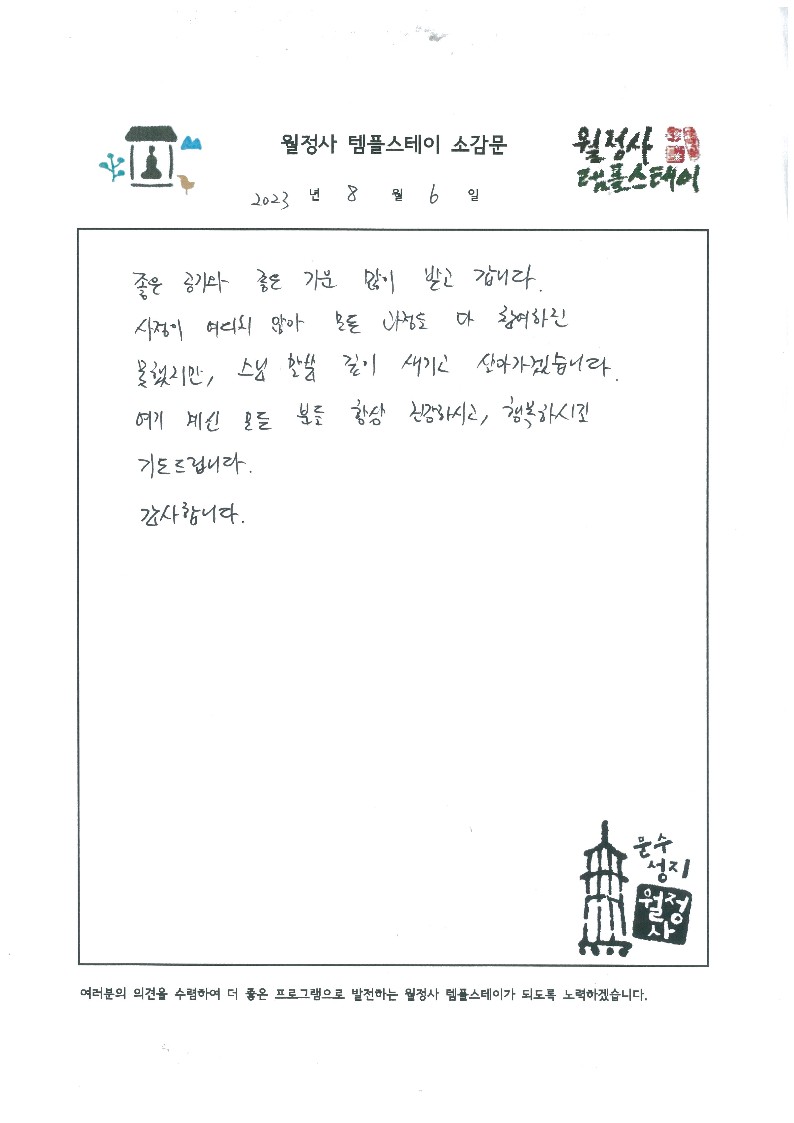 월정사 템플스테이 소감문
월정사
템플스테이
2023 년 8 월 6 일
좋은 공기와 좋은 기운 많이 받고 갑니다.
사정이 여의치 않아 모든 과정을 다 참여하진
못했지만, 스님 말씀 깊이 새기고 살아가겠습니다.
여기 계신 모든 분들 항상 건강하시고, 행복하시길
기도드립니다.
감사합니다.
문수
성지
월정
사
여러분의 의견을 수렴하여 더 좋은 프로그램으로 발전하는 월정사 템플스테이가 되도록 노력하겠습니다.